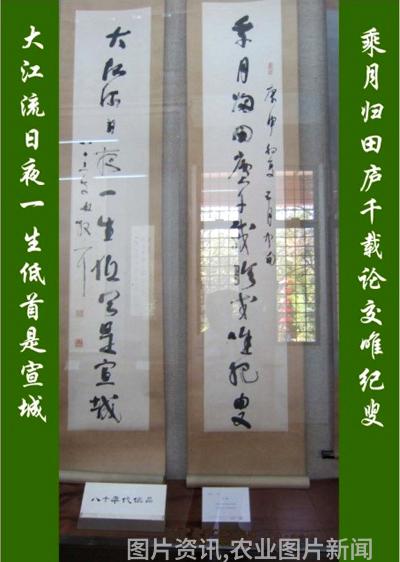 乘月归田庐千载论交唯纪叟
大江流日夜一生低首是宣城
乘月归田庐千载论交唯纪叟
庚申初夏
大江流日夜一生低首是宣城
八十年代作品
图片资讯,农业图片新闻